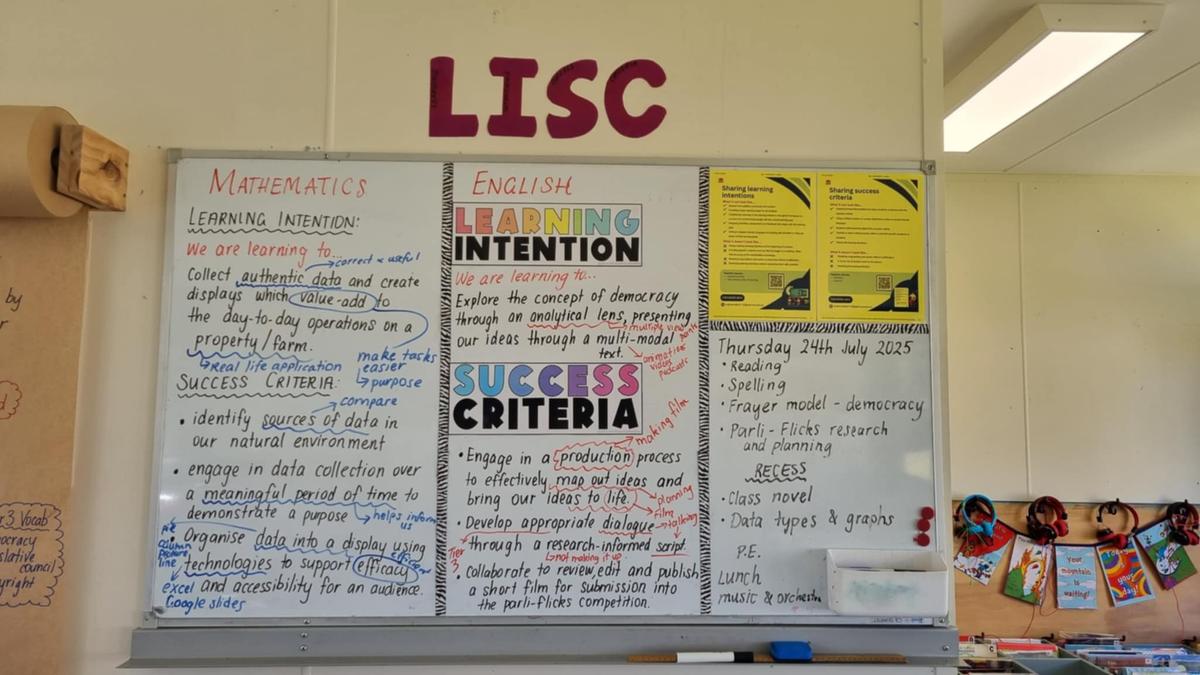 LISC
MATHEMATICS
LEARNING INTENTION:
We are learning to...
correct & useful
Collect authentic data and create
displays which value-add to
the day-to-day operations on a
property/farm.
Real life application
make tasks
easier
purpose
SUCCESS CRITERIA:
compare
• identify sources of data in
our natural environment
• engage in data collection over
a meaningful period of time to
demonstrate a purpose
helps inform
us
• Organise data into a display using
technologies to support efficacy
and accessibility for an audience.
column
picture
line
excel
Google slides
ENGLISH
LEARNING
INTENTION
We are learning to...
Explore the concept of democracy
through an analytical lens, presenting
our ideas through a multi-modal
text.
multiple view points
animation
videos
podcasts
SUCCESS
CRITERIA
making film
• Engage in a production process
to effectively map out ideas and
bring our ideas to life.
planning
film
• Develop appropriate dialogue
talking
through a research-informed script.
not making it up
Tier
3
• Collaborate to review, edit and publish
a short film for submission into
the parli-flicks competition.
Sharing learning
intentions
Sharing success
criteria
Thursday 24th July 2025
• Reading
• Spelling
• Frayer model - democracy
• Parli-Flicks research
and planning
RECESS
• Class novel
• Data types & graphs
P.E.
Lunch
music & orchestra
by
3 Vocab
council
Your
mountain
is
waiting!